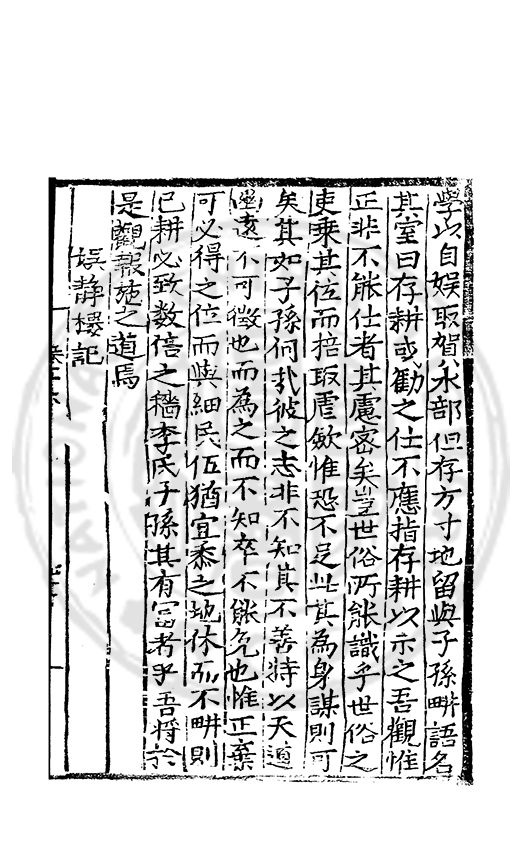 學以自娱取賀水部但存方寸地留與子孫畊語名
其室曰存耕或勸之仕不應指存耕以示之吾觀惟
正非不能仕者其慮宻矣豈世俗所能識乎世俗之
吏乗其位而掊取虐斂惟恐不足此其為身謀則可
矣其如子孫何㢤彼之志非不知其不善特以天道
幽遠不可徴也而為之而不知卒不能免也惟正棄
可必得之位而與細民伍猶宜黍之地休而不畊則
已耕必致数倍之穡李氏子孫其有冨者乎吾将於
是觀報施之道焉
娱静樓記